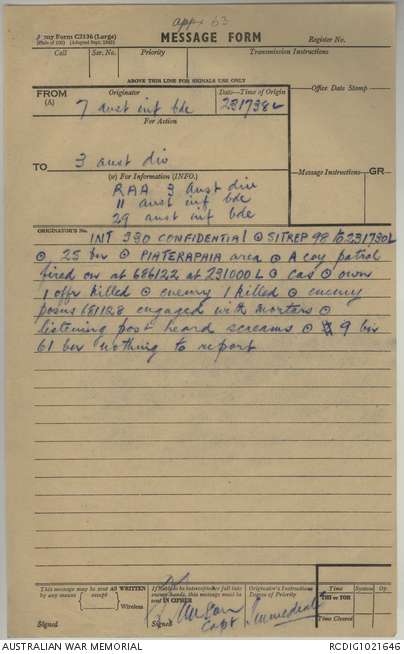 appx 63
Army Form C2136 (Large)
MESSAGE FORM
Register No.
Call
Ser. No.
Priority
Transmission Instructions
ABOVE THIS LINE FOR SIGNALS USE ONLY
FROM
(A)
Originator
Date—Time of Origin
Office Date Stamp
7 aust inf bde
231738L
For Action
TO
3 aust div
(W) For Information (INFO.)
Message Instructions
GR
RAA 3 aust div
11 aust inf bde
29 aust inf bde
ORIGINATOR'S No.
INT 330 CONFIDENTIAL ⊙ SITREP 98 to 231730L
⊙ 25 bn ⊙ PIATERAPAIA area ⊙ A coy patrol
fired on at 686122 at 231000L ⊙ cas ⊙ own
1 offr killed ⊙ enemy 1 killed ⊙ enemy
posns 681128 engaged with mortars ⊙
listening post heard screams ⊙ 9 bn
61 bn nothing to report
This message may be sent AS WRITTEN
by any means except
Wireless
If liable to interception or fall into
enemy hands, this message must be
sent IN CIPHER
Originator's Instructions
Degree of Priority
Time
System
Op.
THI or TOR
Time Cleared
Signed
Signed
Capt
Immediate
AUSTRALIAN WAR MEMORIAL
RCDIG1021646